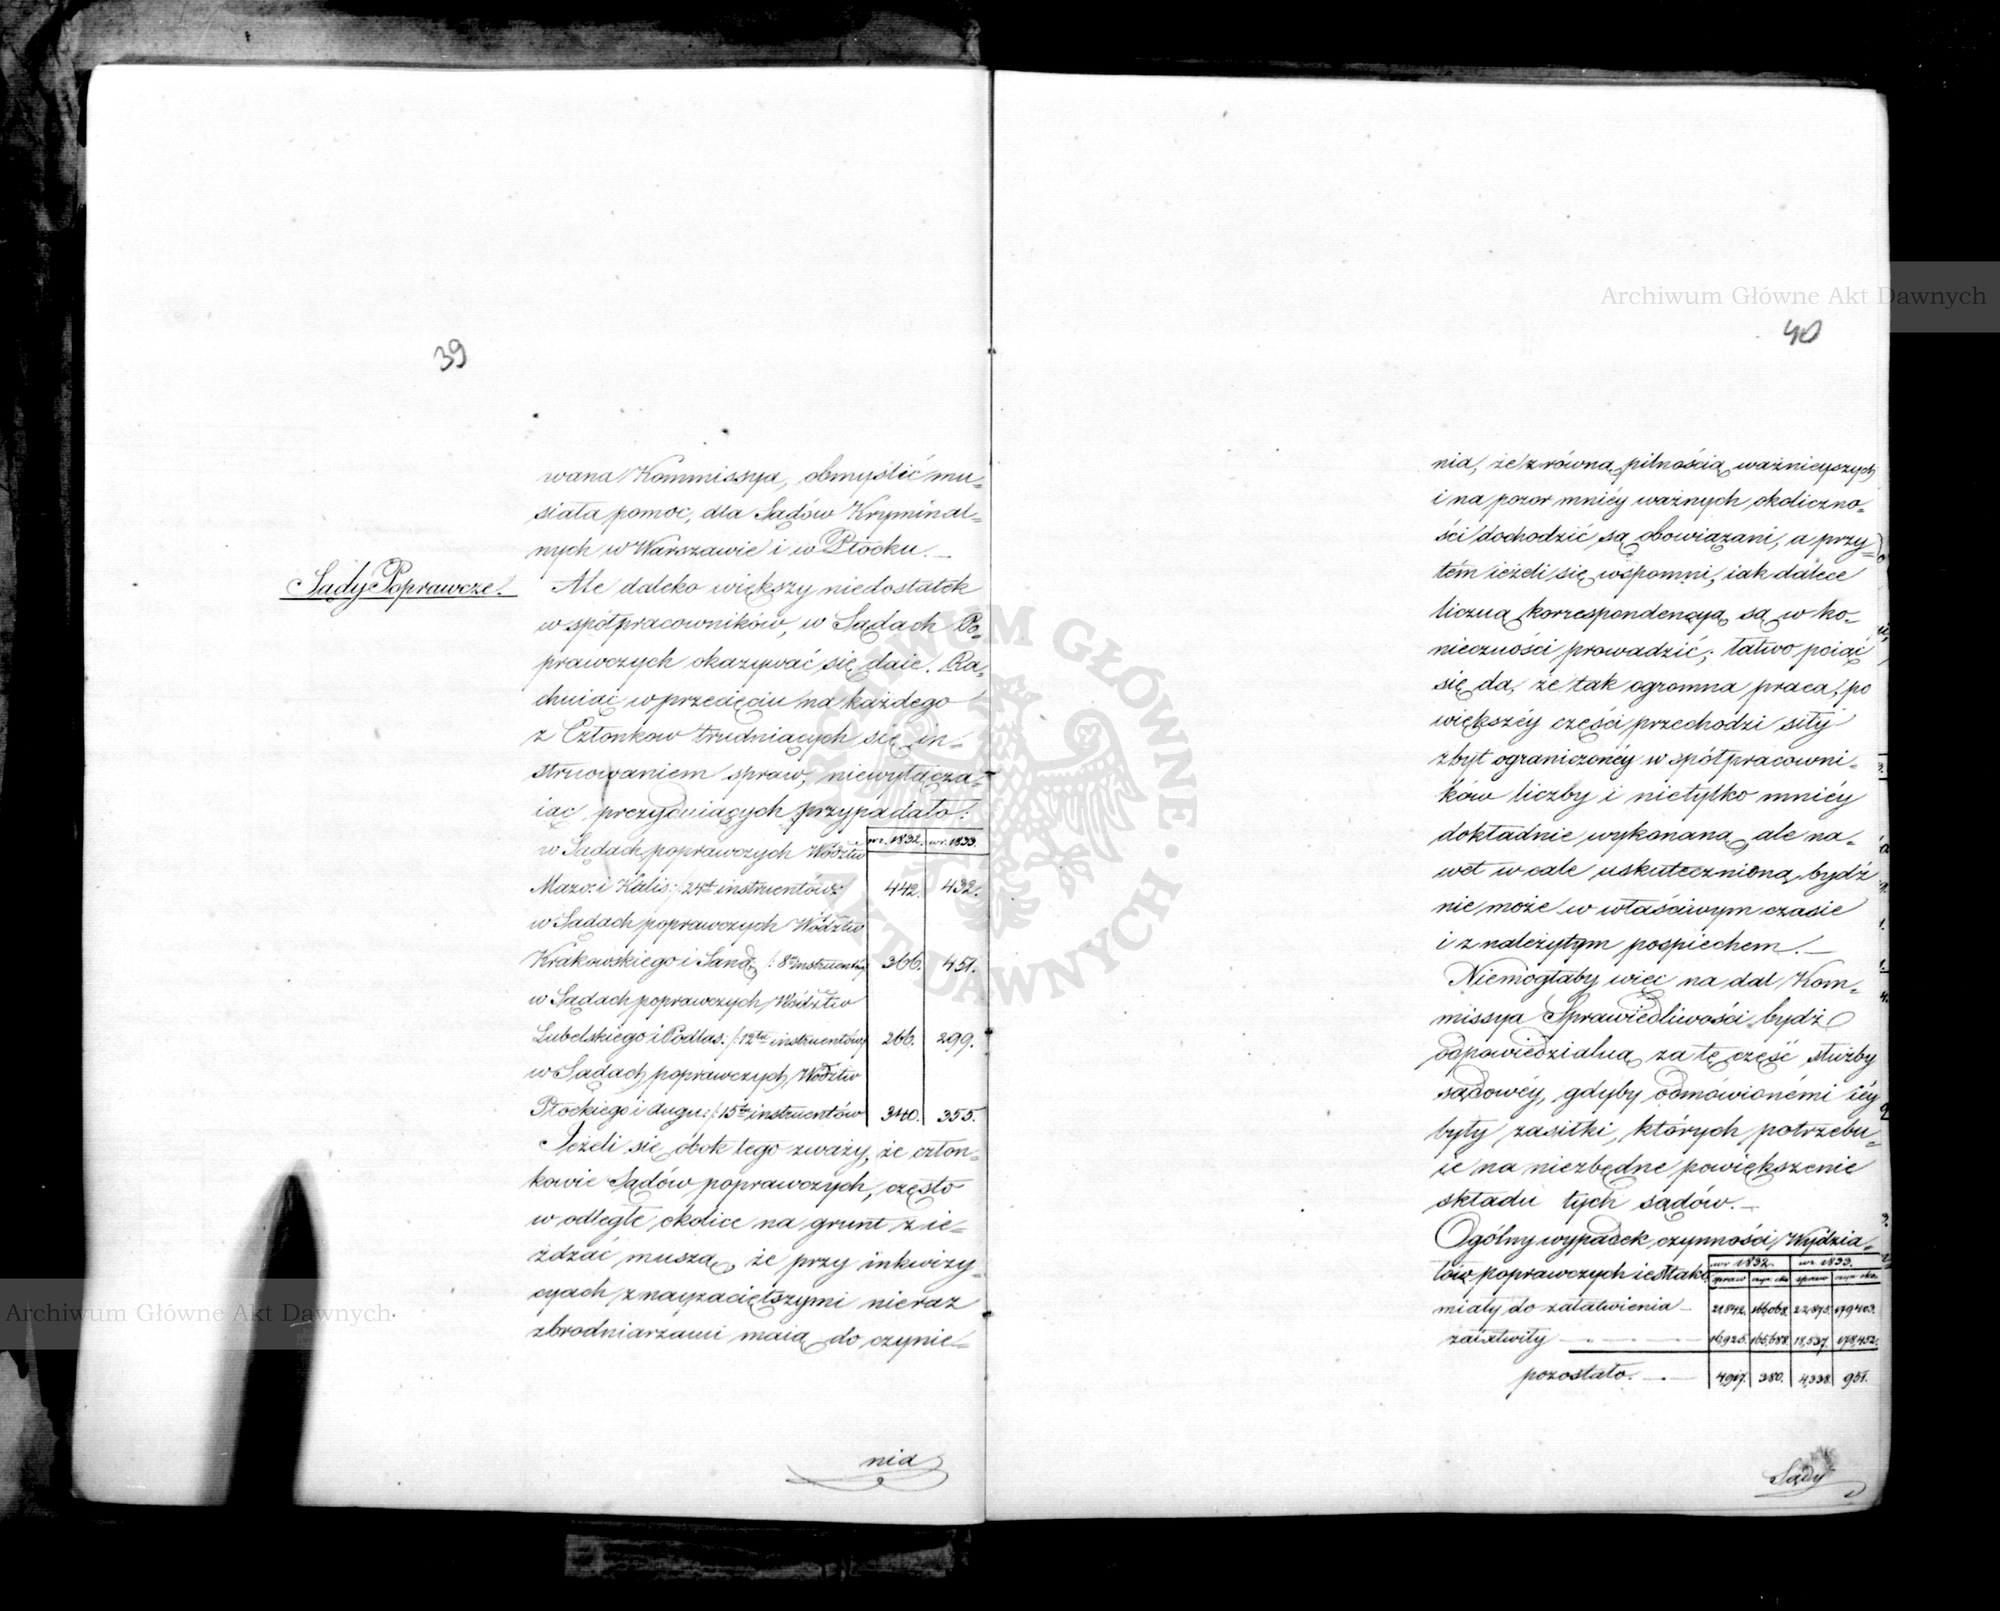 39
wana Kommissya, obmyślić mu„
siała pomoc, dla Sądów Kryminal„
nych w Warszawie i w Płocku. —
Sądy Poprawcze.
Ale daleko większy niedostatek
współpracowników, w Sądach Po„
prawczych okazywać się daie. Ra„
chuiąc w przecięciu na każdego
z Członkow trudniących się in„
struowaniem spraw, niewyłącza„
iąc prezyduiących przypadało:
w r. 1832. w r. 1833.
w Sądach poprawczych Wództw
Mazo: i Kalis: /: 24ch instruentów: 442. 432.
w Sądach poprawczych Wództw
Krakowskiego i Sand. /: 8u instruentów 366. 451.
w Sądach poprawczych Wództw
Lubelskiego i Podlas. /: 12tu instruentów 266. 299.
w Sądach poprawczych Wództw
Płockiego i Augu: /: 15tu instruentów 340. 355.
Jeżeli się obok tego zważy, że człon„
kowie Sądów poprawczych, często
w odległe okolice na grunt z ie„
żdżać muszą, że przy inkwizy„
cyach z nayzaciętszymi nieraz
zbrodniarzami maią do czynie„
nia
40
nia, że z równą pilnością ważnieyszych
i na pozor mniéy ważnych okoliczno„
ści dochodzić są obowiązani, a przy„
tem ieżeli się wspomni, iak dalece
liczną korrespondencyą są w ko„
nieczności prowadzić; łatwo poiąć
się da, że tak ogromna praca, po
większéy części przechodzi siły
zbyt ograniczonéy współpracowni„
ków liczby i nietylko mniéy
dokładnie wykonaną, ale na„
wet w cale uskutecznioną bydź
nie może w właściwym czasie
i z należytym pospiechem. —
Niemogłaby więc na dal Kom„
missya Sprawiedliwości bydź
odpowiedzialną za tę część służby
sądowéy, gdyby odmówionémi iéy
były zasiłki, których potrzebu„
ie na niezbędne powiększenie
składu tych sądów. —
Ogólny wypadek czynności Wydzia„
łów poprawczych iest taki w r 1832. w r. 1833.
spraw spraw
miały do załatwienia — 21842. 166068. 22,875. 179403.
załatwiły — 16925. 165,688. 18,537. 178,452.
pozostało. — 4,917. 380. 4,338. 951.
Sądy
Archiwum Główne Akt Dawnych
Archiwum Główne Akt Dawnych
ARCHIWUM GŁÓWNE AKT DAWNYCH